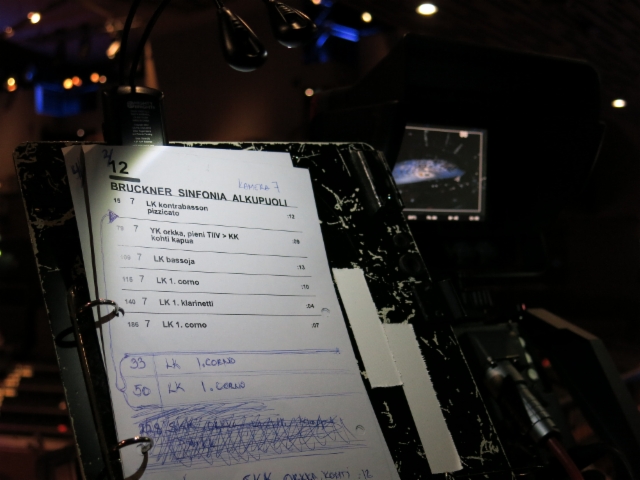 12
KAMERA 7
BRUCKNER SINFONIA ALKUPUOLI
15 7 LK kontrabasson :12
pizzicato
75 7 YK orkka, pieni TIIV > KK :09
kohti kapua
7 LK bassoja :13
115 7 LK 1. corno :10
140 7 LK 1. klarinetti :04
186 7 LK 1. corno :07
33 LK 1. CORNO
50 LK 1. CORNO
ORKKA KOHTI :12